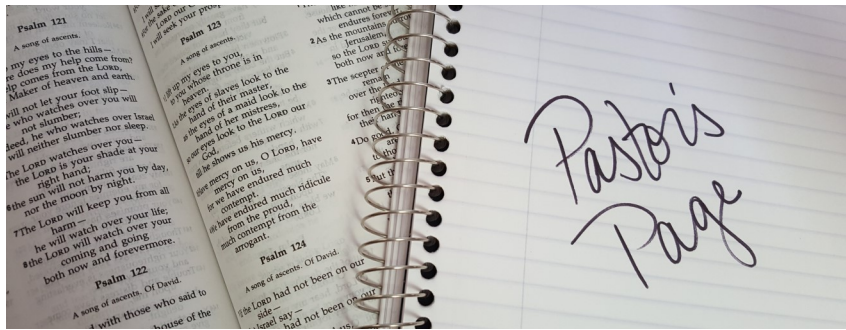 Psalm 121
A song of ascents.
my eyes to the hills—
does my help come from?
comes from the LORD,
Maker of heaven and earth.
will not let your foot slip—
who watches over you will
not slumber;
indeed, he who watches over Israel
will neither slumber nor sleep.
The LORD watches over you—
the LORD is your shade at your
right hand;
the sun will not harm you by day,
nor the moon by night.
7The LORD will keep you from all
harm—
he will watch over your life;
8the LORD will watch over your
coming and going
both now and forevermore.
Psalm 122
A song of ascents. Of David.
with those who said to
house of the
the sake
LORD our
I will seek your
Psalm 123
A song of ascents.
I lift up my eyes to you,
to you whose throne is in
heaven.
the eyes of slaves look to the
hand of their master,
as the eyes of a maid look to the
hand of her mistress,
so our eyes look to the LORD our
God,
till he shows us his mercy.
Have mercy on us, O LORD, have
mercy on us,
for we have endured much
contempt.
We have endured much ridicule
from the proud,
much contempt from the
arrogant.
Psalm 124
A song of ascents. Of David.
If the LORD had not been on our
side—
Israel say—
had not been on our
which cannot be
endures forever.
2As the mountains
Jerusalem,
so the LORD
both now and
3The scepter
remain
over the
for then the
4Do good,
Pastor's
Page